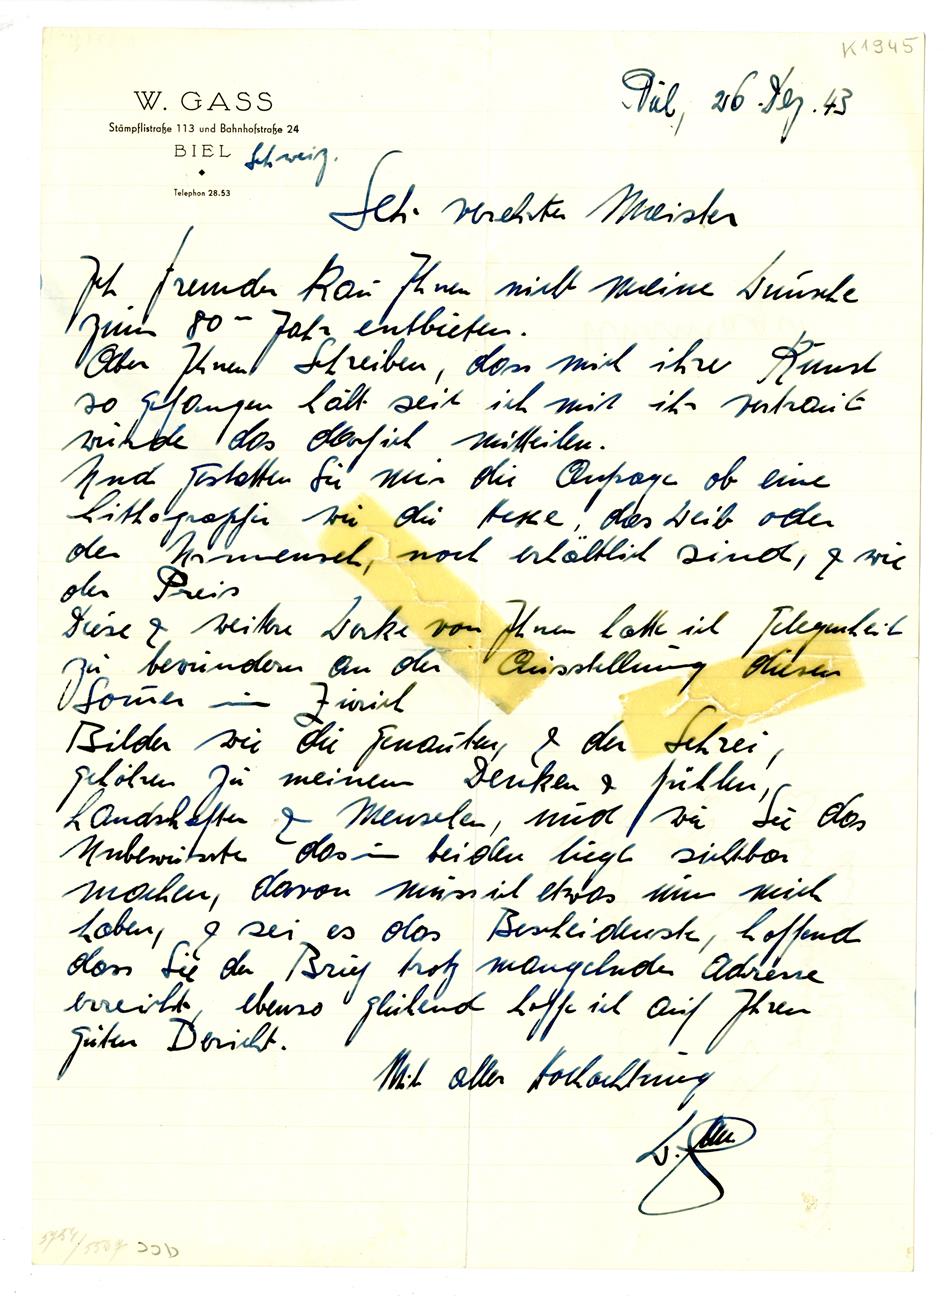 K1945
W. GASS
Stämpflistraße 113 und Bahnhofstraße 24
BIEL Schweiz.
Telephon 28.53
Biel, 26. Dez. 43
Sehr verehrter Meister
Ich fremder kan Ihnen nicht meine Wünsche
zum 80 – Jahr entbieten.
Aber Ihnen Schreiben, dass mich ihre Kunst
so gefangen hält seit ich mit ihr vertraut
wurde das darf ich mitteilen.
Und gestatten Sie mir die Anfrage ob eine
Lithographie wie die Hexe, das Weib oder
der Urmensch, noch erhältlich sind, & wie
der Preis
Diese & weitere Werke von Ihnen hatte ich Gelegenheit
zu bewundern an der Ausstellung diesen
Somer in Zürich
Bilder wie die Genanten, & der Schrei,
gehören zu meinem Denken & fühlen,
Landschaften & Menschen, und wie Sie das
Unbewusste das in beiden liegt sichtbar
machen, davon muss ich etwas um mich
haben, & sei es das Bescheidenste, hoffend
dass Sie der Brief trotz mangelnder Adresse
erreicht, ebenso glühend hoffe ich auf Ihren
guten Bericht.
Mit aller Hochachtung
W. Gass